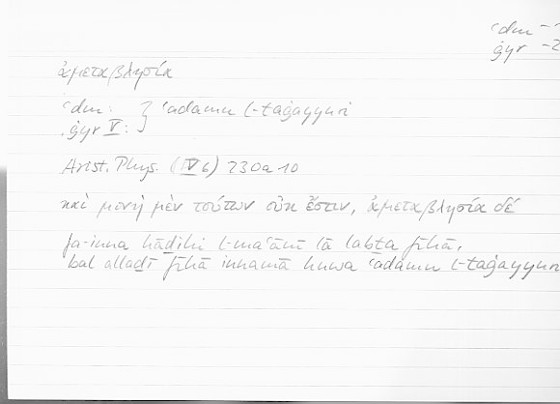 ʿdm
ġyr
ἀμεταβλησία
ʿdm: } ʿadamu t-taġayyuri
ġyr V:
Arist. Phys. 230a10
καὶ μονὴ μὲν τούτων οὐκ ἔστιν, ἀμεταβλησία δέ
fa-inna hāḏihi l-maʿānī lā labṯa fīhā,
bal allaḏī fīhā innamā huwa ʿadamu t-taġayyuri